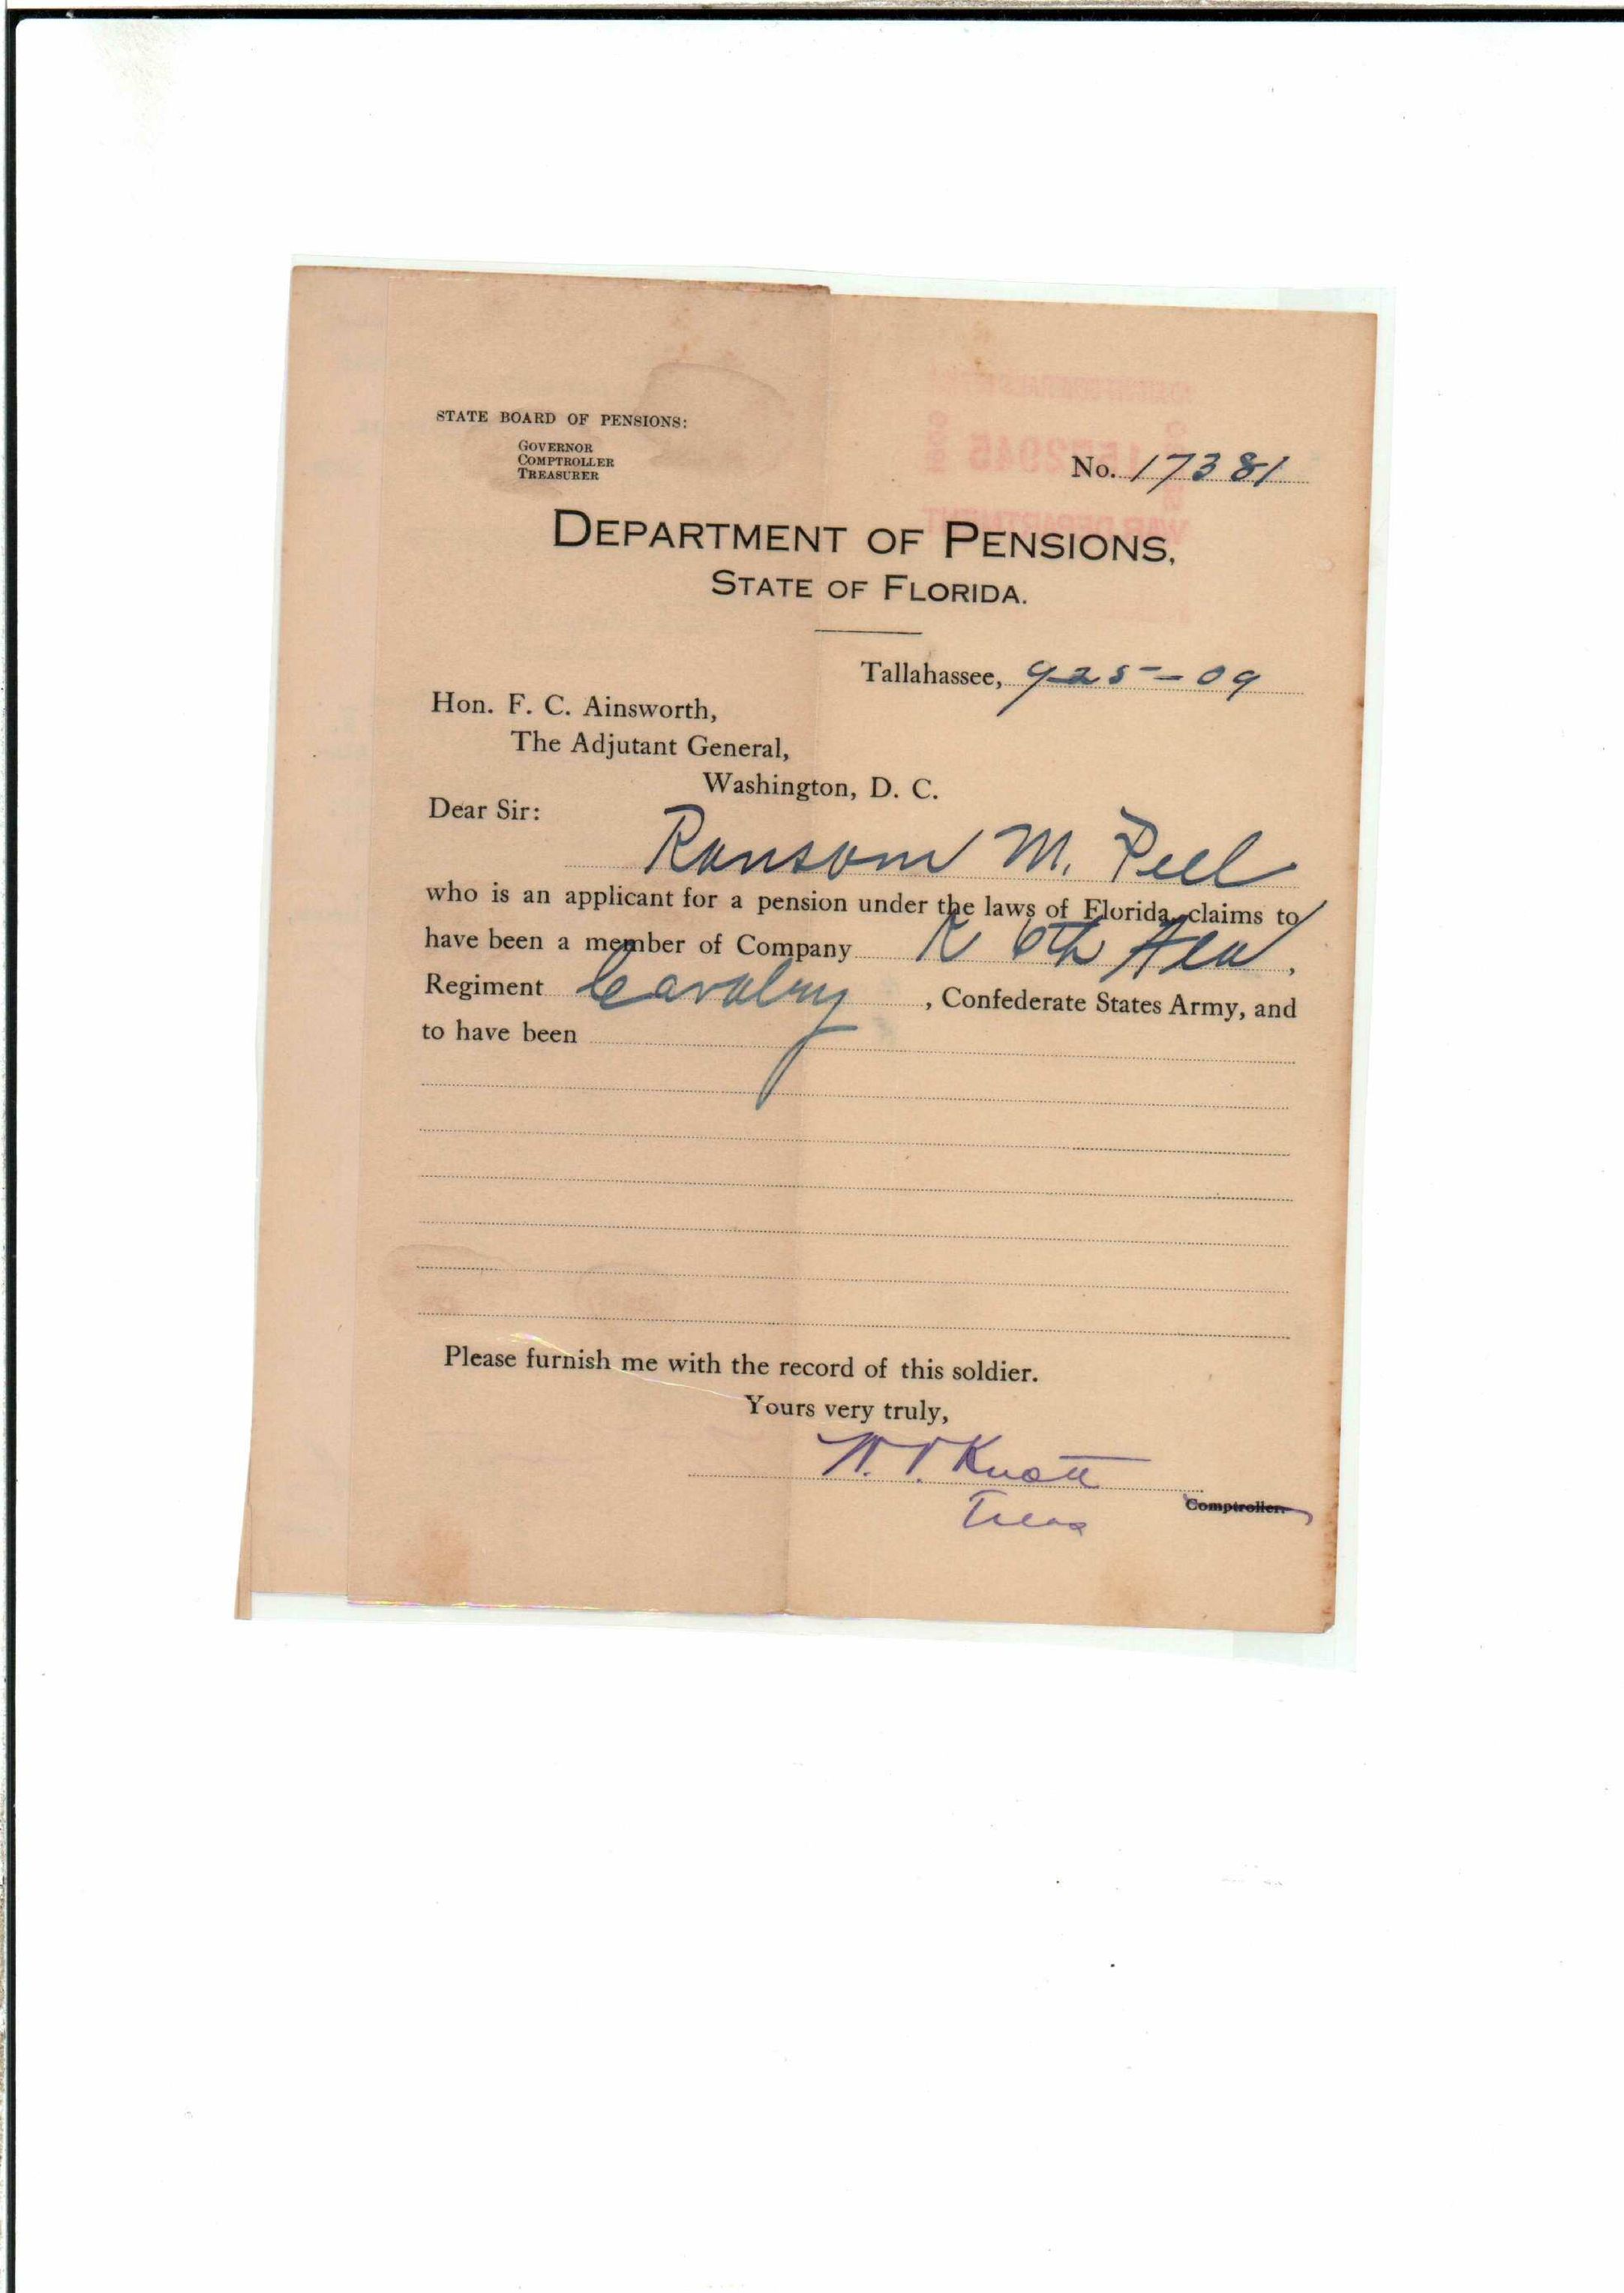 STATE BOARD OF PENSIONS:
GOVERNOR
COMPTROLLER
TREASURER
No. 17381
DEPARTMENT OF PENSIONS,
STATE OF FLORIDA.
Tallahassee, 9-25-09
Hon. F. C. Ainsworth,
The Adjutant General,
Washington, D. C.
Dear Sir:
Ransom M. Peel
who is an applicant for a pension under the laws of Florida, claims to
have been a member of Company K 6th Ala.
Regiment Cavalry, Confederate States Army, and
to have been
Please furnish me with the record of this soldier.
Yours very truly,
W. V. Knott
Treas
Comptroller.